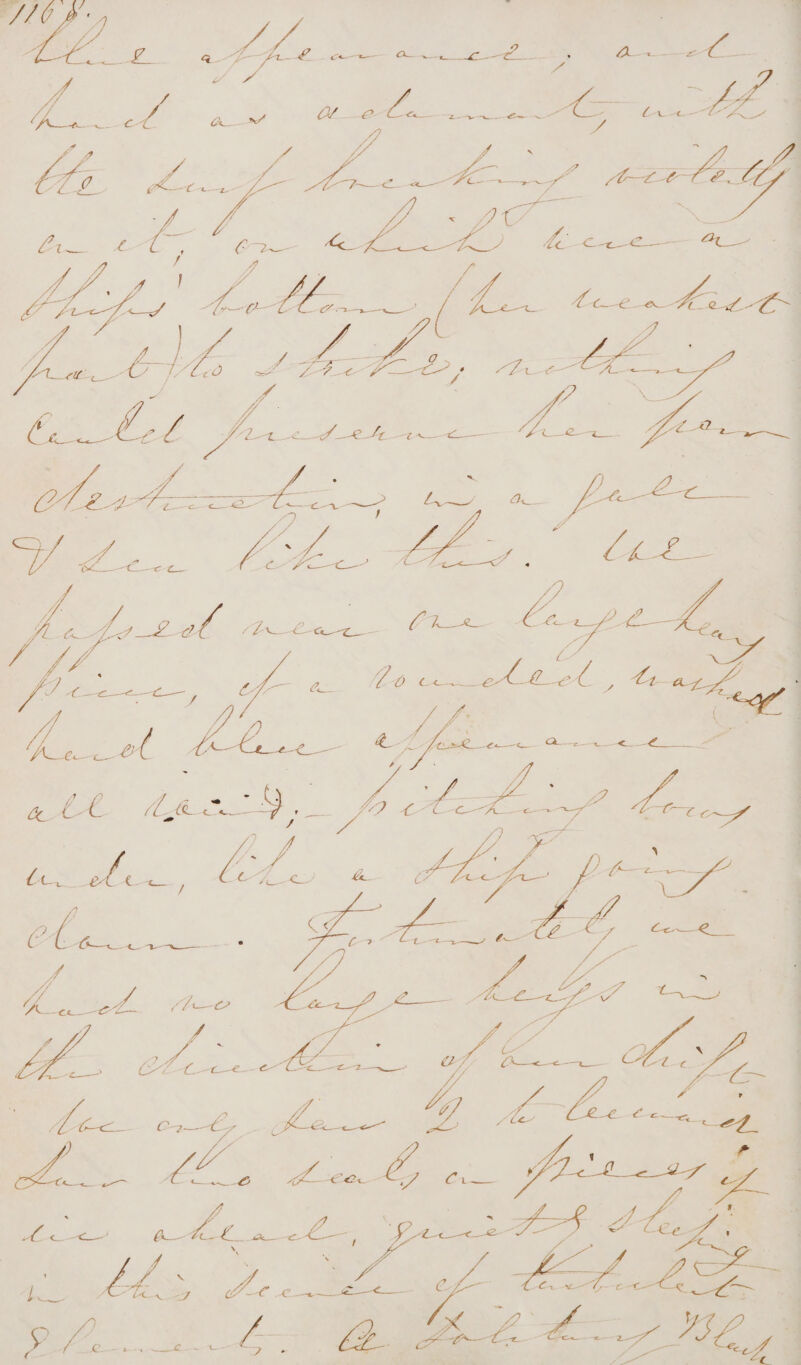 1168.
blue appearance; and
hard as adamant, with
the surf breaking violently
on it; on which were a
ships' bottom (her weakest
part) to strike; nothing
could preserve her from
destruction, in a gale
& sea like this. We
passed near one large heavy
piece, of a rounded, washed
hard blue appearance
all round;- pitching bows
under, like a ship going
down. Fortunately we
had no large bergs in
the direction of our drift
we only saw 2 to leeward
Saw two seals on pieces of
ice ahead, quietly sleeping
in this scene of turbulent
Elements. A solitary Black